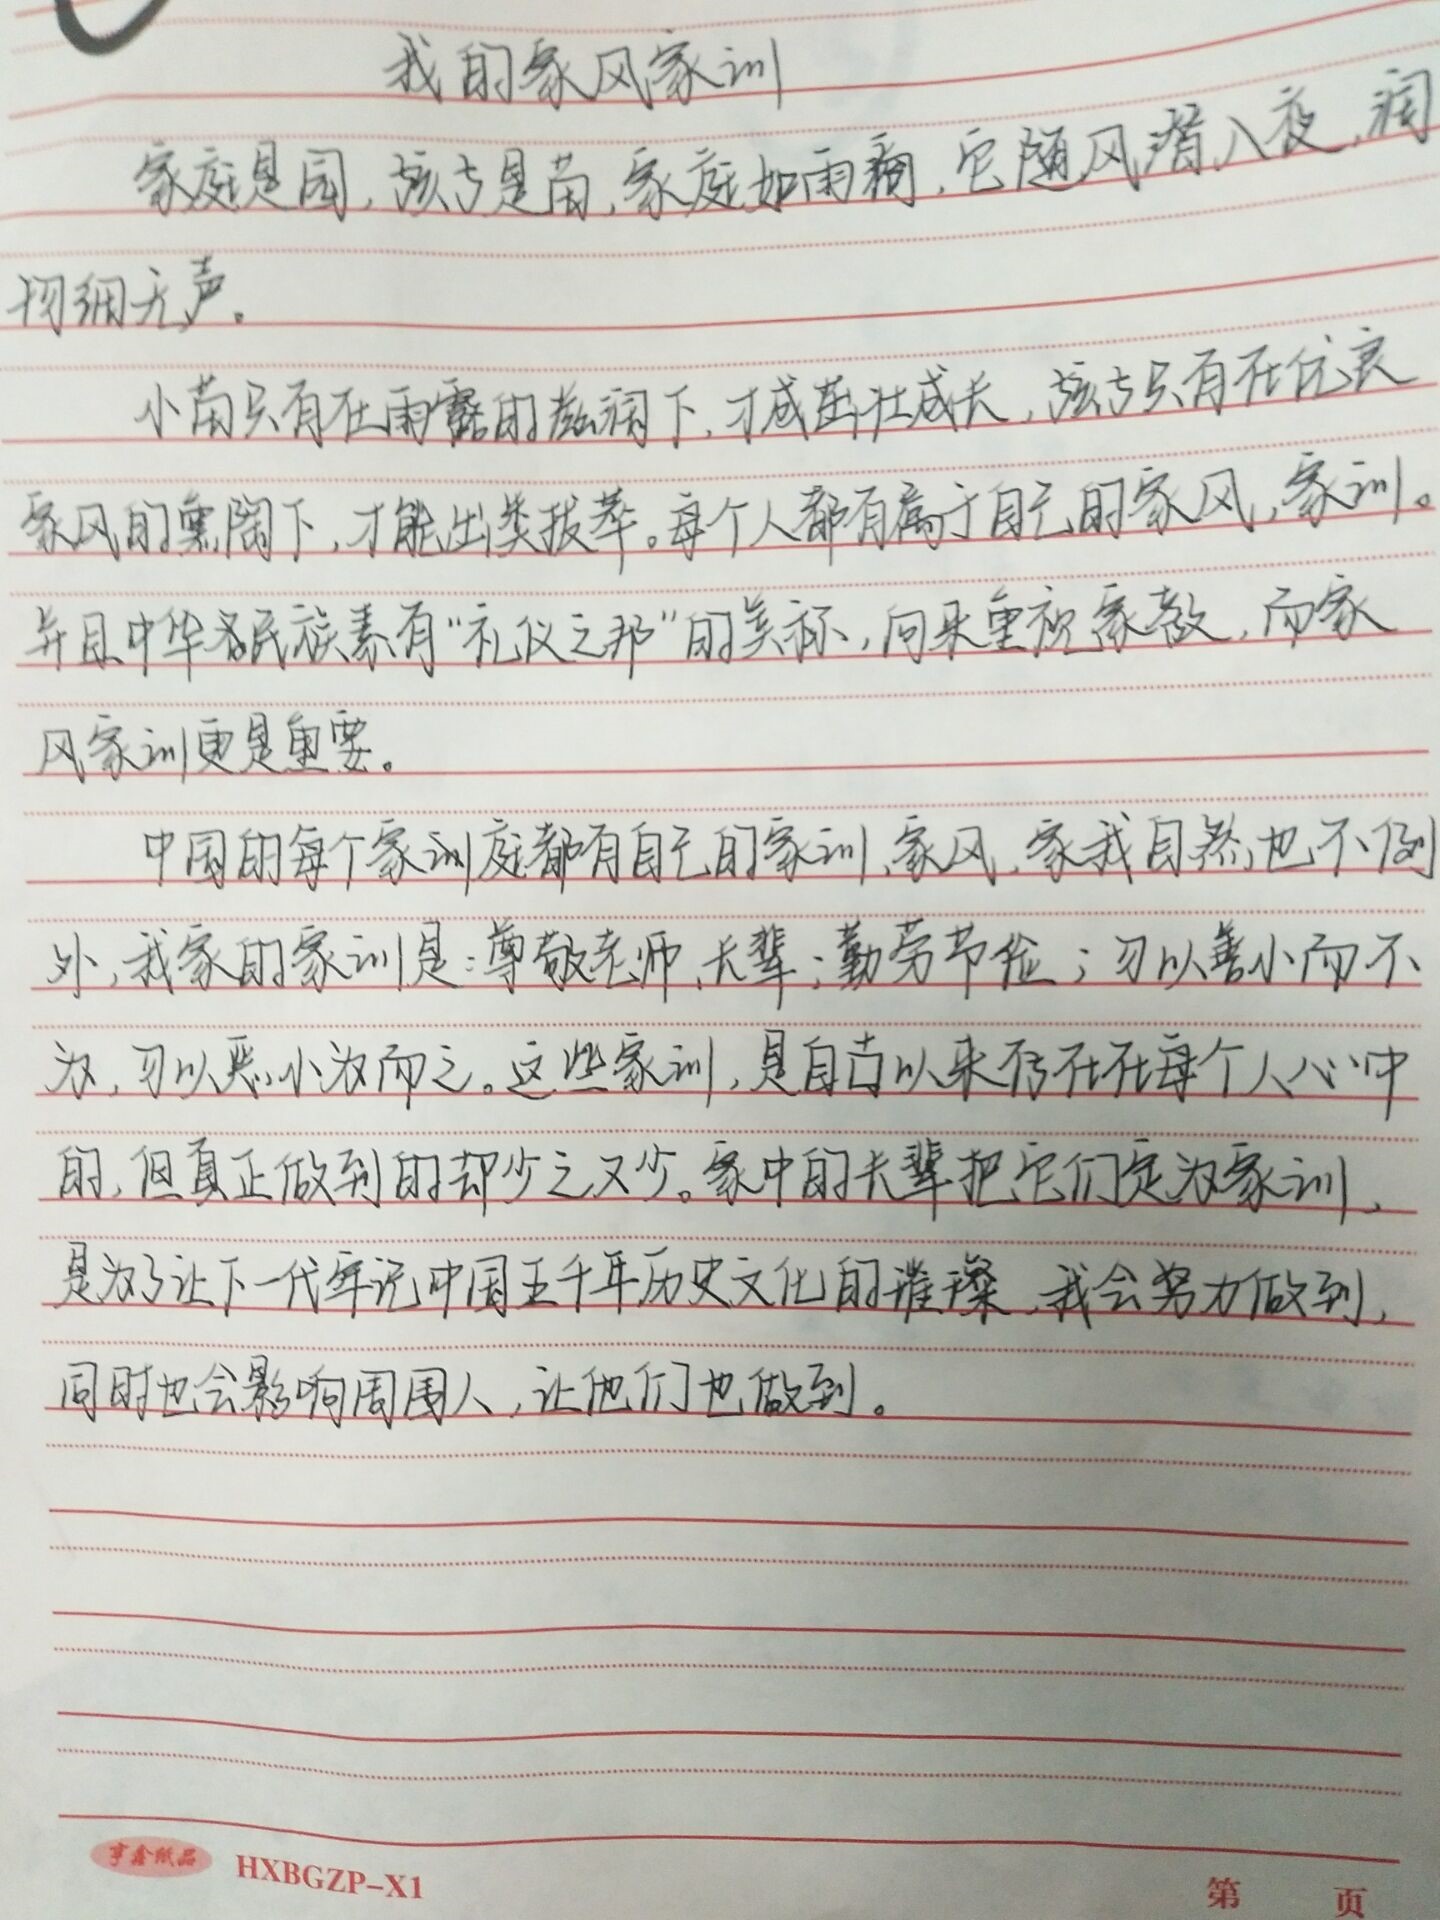 我的家风家训
家庭是园,孩子是苗,家庭如雨,它随风潜入夜,润
物细无声。
小苗只有在雨露的滋润下,才成茁壮成长,孩子只有在优良
家风的熏陶下,才能出类拔萃。每个人都有属于自己的家风,家训。
并且中华各民族素有“礼仪之邦”的美称,向来重视家教,而家
风家训更是重要。
中国的每个家训庭都有自己的家训、家风,家我自然也不例
外,我家的家训是:尊敬老师、长辈;勤劳节俭;勿以善小而不
为,勿以恶小为而之。这些家训,是自古以来存在在每个人心中
的,但真正做到的却少之又少。家中的长辈把它们定为家训,
是为了让下一代牢记中国五千年历史文化的璀璨,我会努力做到,
同时也会影响周围人,让他们也做到。
亨鑫纸品 HXBGZP-X1 第 页